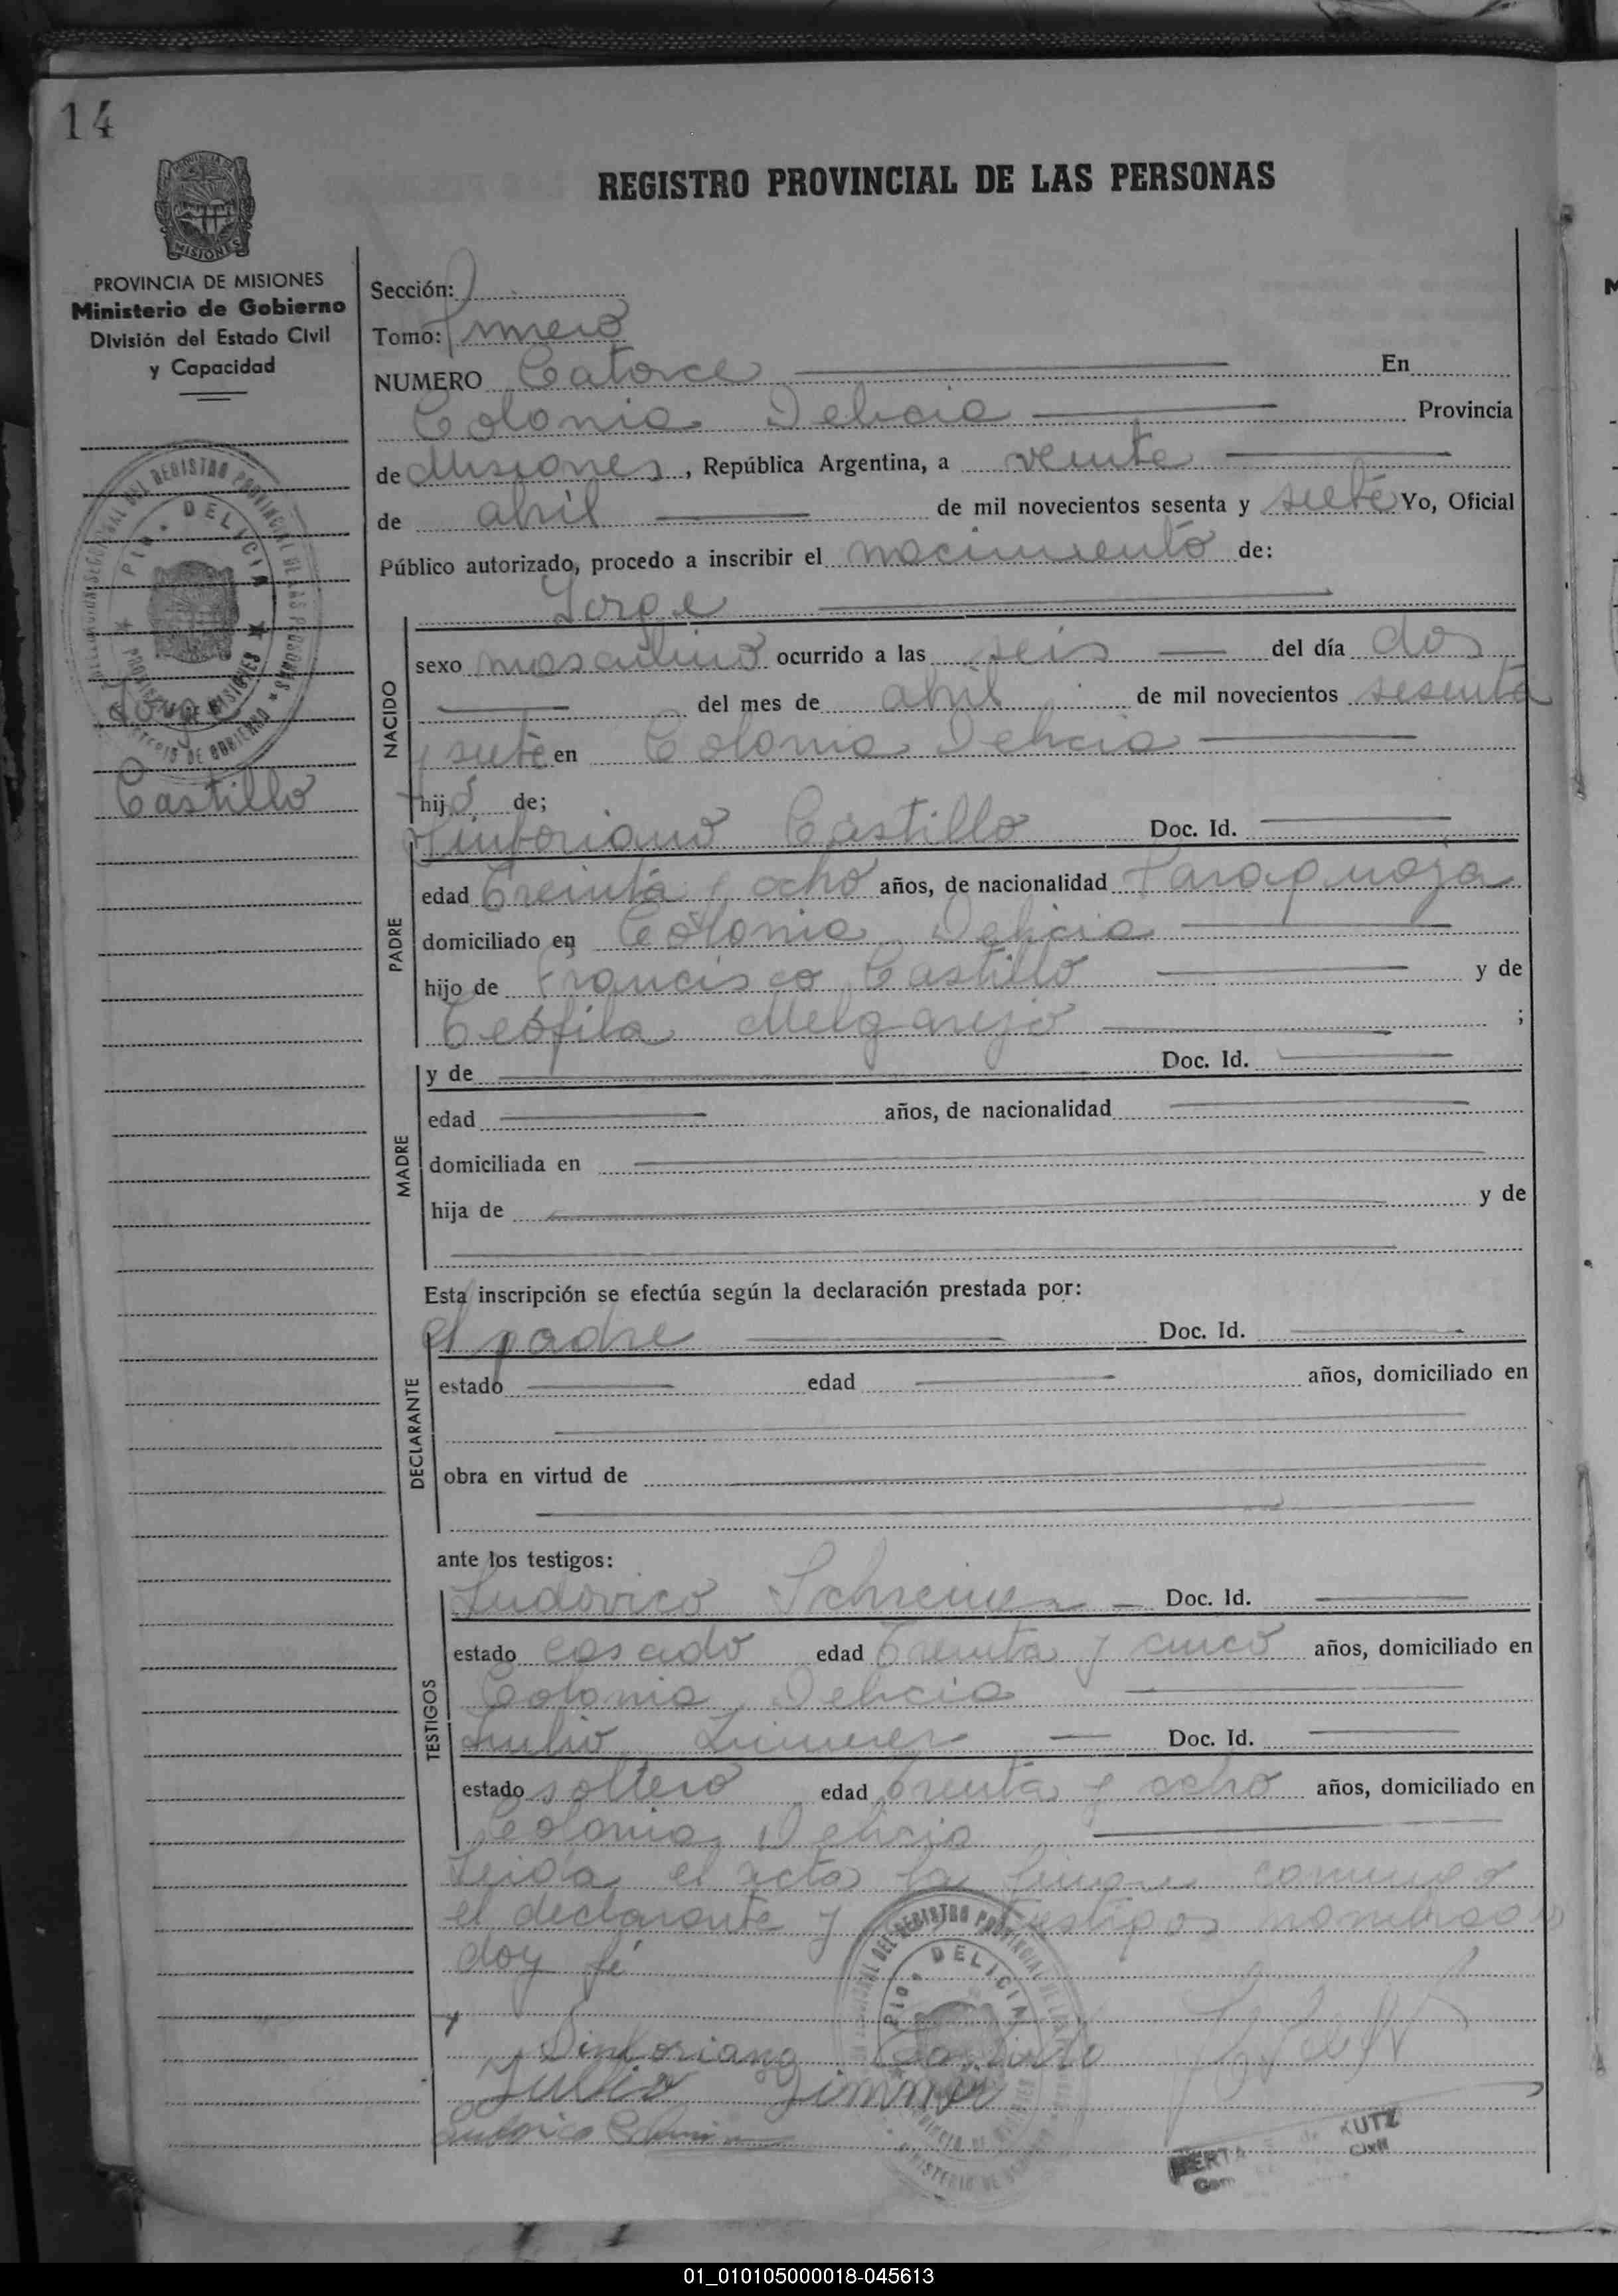 14
REGISTRO PROVINCIAL DE LAS PERSONAS
MISIONES
PROVINCIA DE MISIONES
Ministerio de Gobierno
División del Estado Civil
y Capacidad
Jorge
Castillo
Sección:
Tomo: Primero
NUMERO Catorce En
Colonia Delicia Provincia
de Misiones, República Argentina, a veinte
de abril de mil novecientos sesenta y siete Yo, Oficial
Público autorizado, procedo a inscribir el nacimiento de:
Jorge
NACIDO
sexo masculino ocurrido a las seis del día dos
del mes de abril de mil novecientos sesenta
y siete en Colonia Delicia
hijo de;
PADRE
Sinforiano Castillo Doc. Id.
edad Treinta y ocho años, de nacionalidad Paraguaya
domiciliado en Colonia Delicia
hijo de Francisco Castillo y de
Teófila Melgarejo ;
MADRE
y de Doc. Id.
edad años, de nacionalidad
domiciliada en
hija de y de
Esta inscripción se efectúa según la declaración prestada por:
DECLARANTE
el padre Doc. Id.
estado edad años, domiciliado en
obra en virtud de
ante los testigos:
TESTIGOS
Ludovico Doc. Id.
estado casado edad Treinta y cinco años, domiciliado en
Colonia Delicia
Julio Doc. Id.
estado soltero edad treinta y ocho años, domiciliado en
Colonia Delicia
Leida el acta la
el declarante y testigos nombrados
doy fé
Sinforiano Castillo
Julio Zimmer
01_010105000018-045613